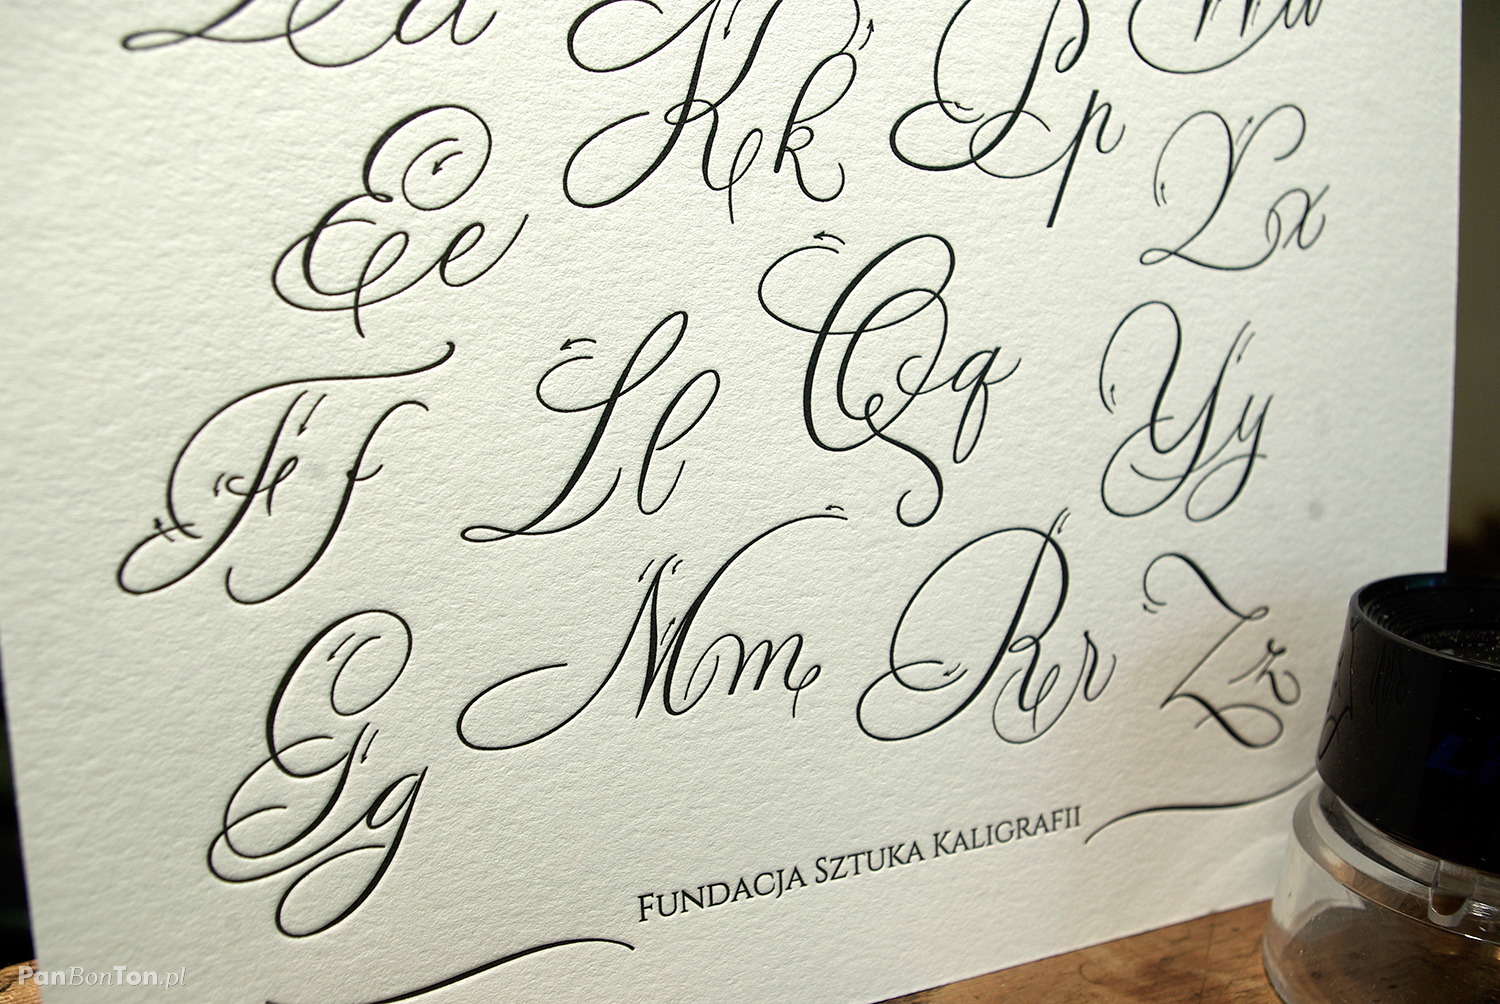 Dd Kk Pp Ww
Ee Xx
Ff Ll Qq Yy
Gg Mm Rr Zz
Fundacja Sztuka Kaligrafii
PanBonTon.pl